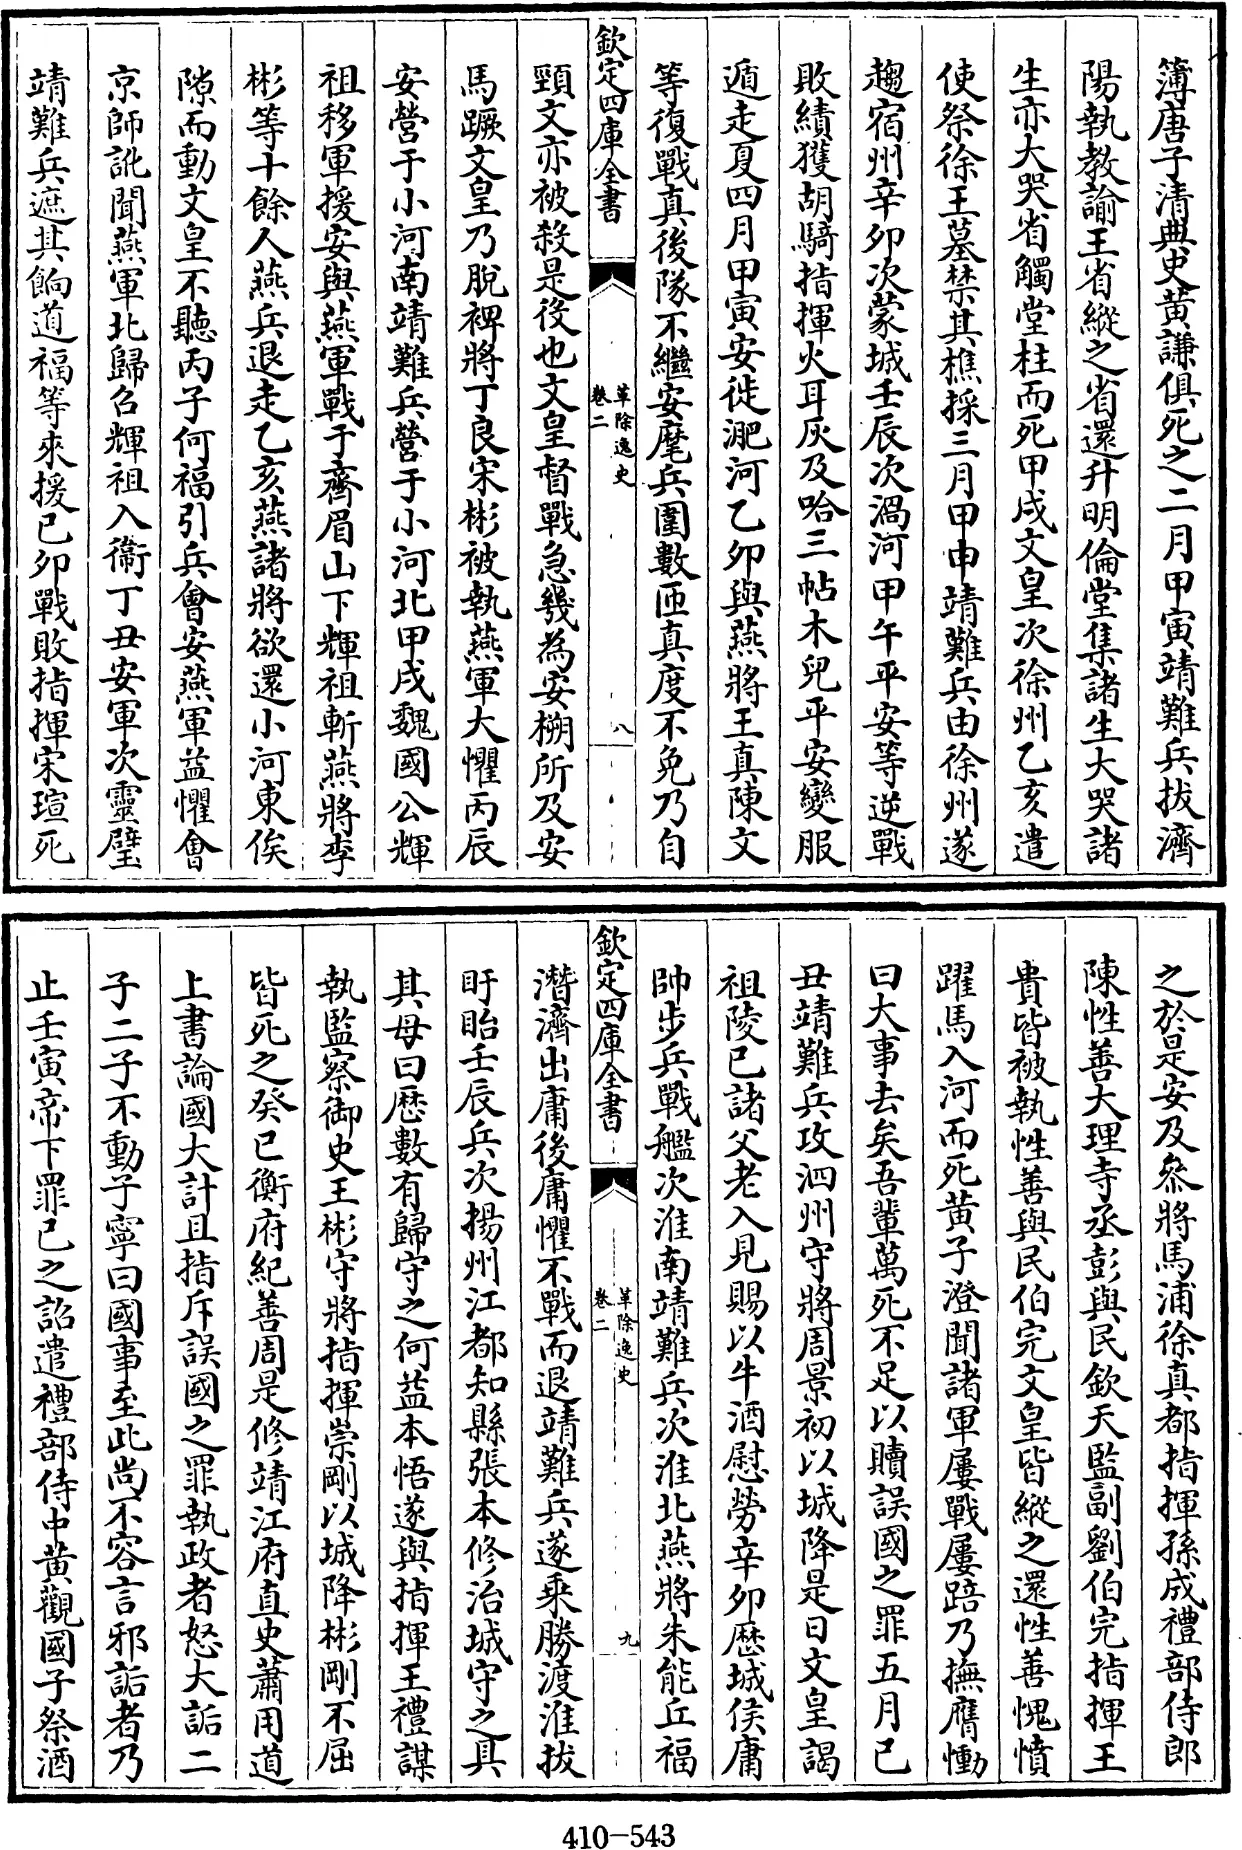 簿唐子清典史黃謙俱死之二月甲寅靖難兵拔濟
陽執教諭王省縱之省還升明倫堂集諸生大哭諸
生亦大哭省觸堂柱而死甲戌文皇次徐州乙亥遣
使祭徐王墓禁其樵採三月甲申靖難兵由徐州遂
趨宿州辛卯次蒙城壬辰次渦河甲午平安等逆戰
敗績獲胡騎指揮火耳灰及哈三帖木兒平安變服
遁走夏四月甲寅安徙淝河乙卯與燕將王真陳文
等復戰真後隊不繼安麾兵圍數匝真度不免乃自
欽定四庫全書
革除逸史
卷二
八
頸文亦被殺是役也文皇督戰急幾為安槊所及安
馬蹶文皇乃脫裨將丁良宋彬被執燕軍大懼丙辰
安營于小河南靖難兵營于小河北甲戌魏國公輝
祖移軍援安與燕軍戰于齊眉山下輝祖斬燕將李
彬等十餘人燕兵退走乙亥燕諸將欲還小河東俟
隙而動文皇不聽丙子何福引兵會安燕軍益懼會
京師訛聞燕軍北歸召輝祖入衞丁丑安軍次靈璧
靖難兵遮其餉道福等來援己卯戰敗指揮宋瑄死
之於是安及叅將馬浦徐真都指揮孫成禮部侍郎
陳性善大理寺丞彭與民欽天監副劉伯完指揮王
貴皆被執性善與民伯完文皇皆縱之還性善愧憤
躍馬入河而死黃子澄聞諸軍屢戰屢踣乃撫膺慟
曰大事去矣吾輩萬死不足以贖誤國之罪五月己
丑靖難兵攻泗州守將周景初以城降是日文皇謁
祖陵已諸父老入見賜以牛酒慰勞辛卯厯城侯庸
帥步兵戰艦次淮南靖難兵次淮北燕將朱能丘福
欽定四庫全書
革除逸史
卷二
九
潛濟出庸後庸懼不戰而退靖難兵遂乘勝渡淮拔
盱眙壬辰兵次揚州江都知縣張本修治城守之具
其母曰厯數有歸守之何益本悟遂與指揮王禮謀
執監察御史王彬守將指揮崇剛以城降彬剛不屈
皆死之癸巳衡府紀善周是修靖江府直史蕭用道
上書論國大計且指斥誤國之罪執政者怒大詬二
子二子不動子寧曰國事至此尚不容言邪詬者乃
止壬寅帝下罪已之詔遣禮部侍中黃觀國子祭酒
410-543